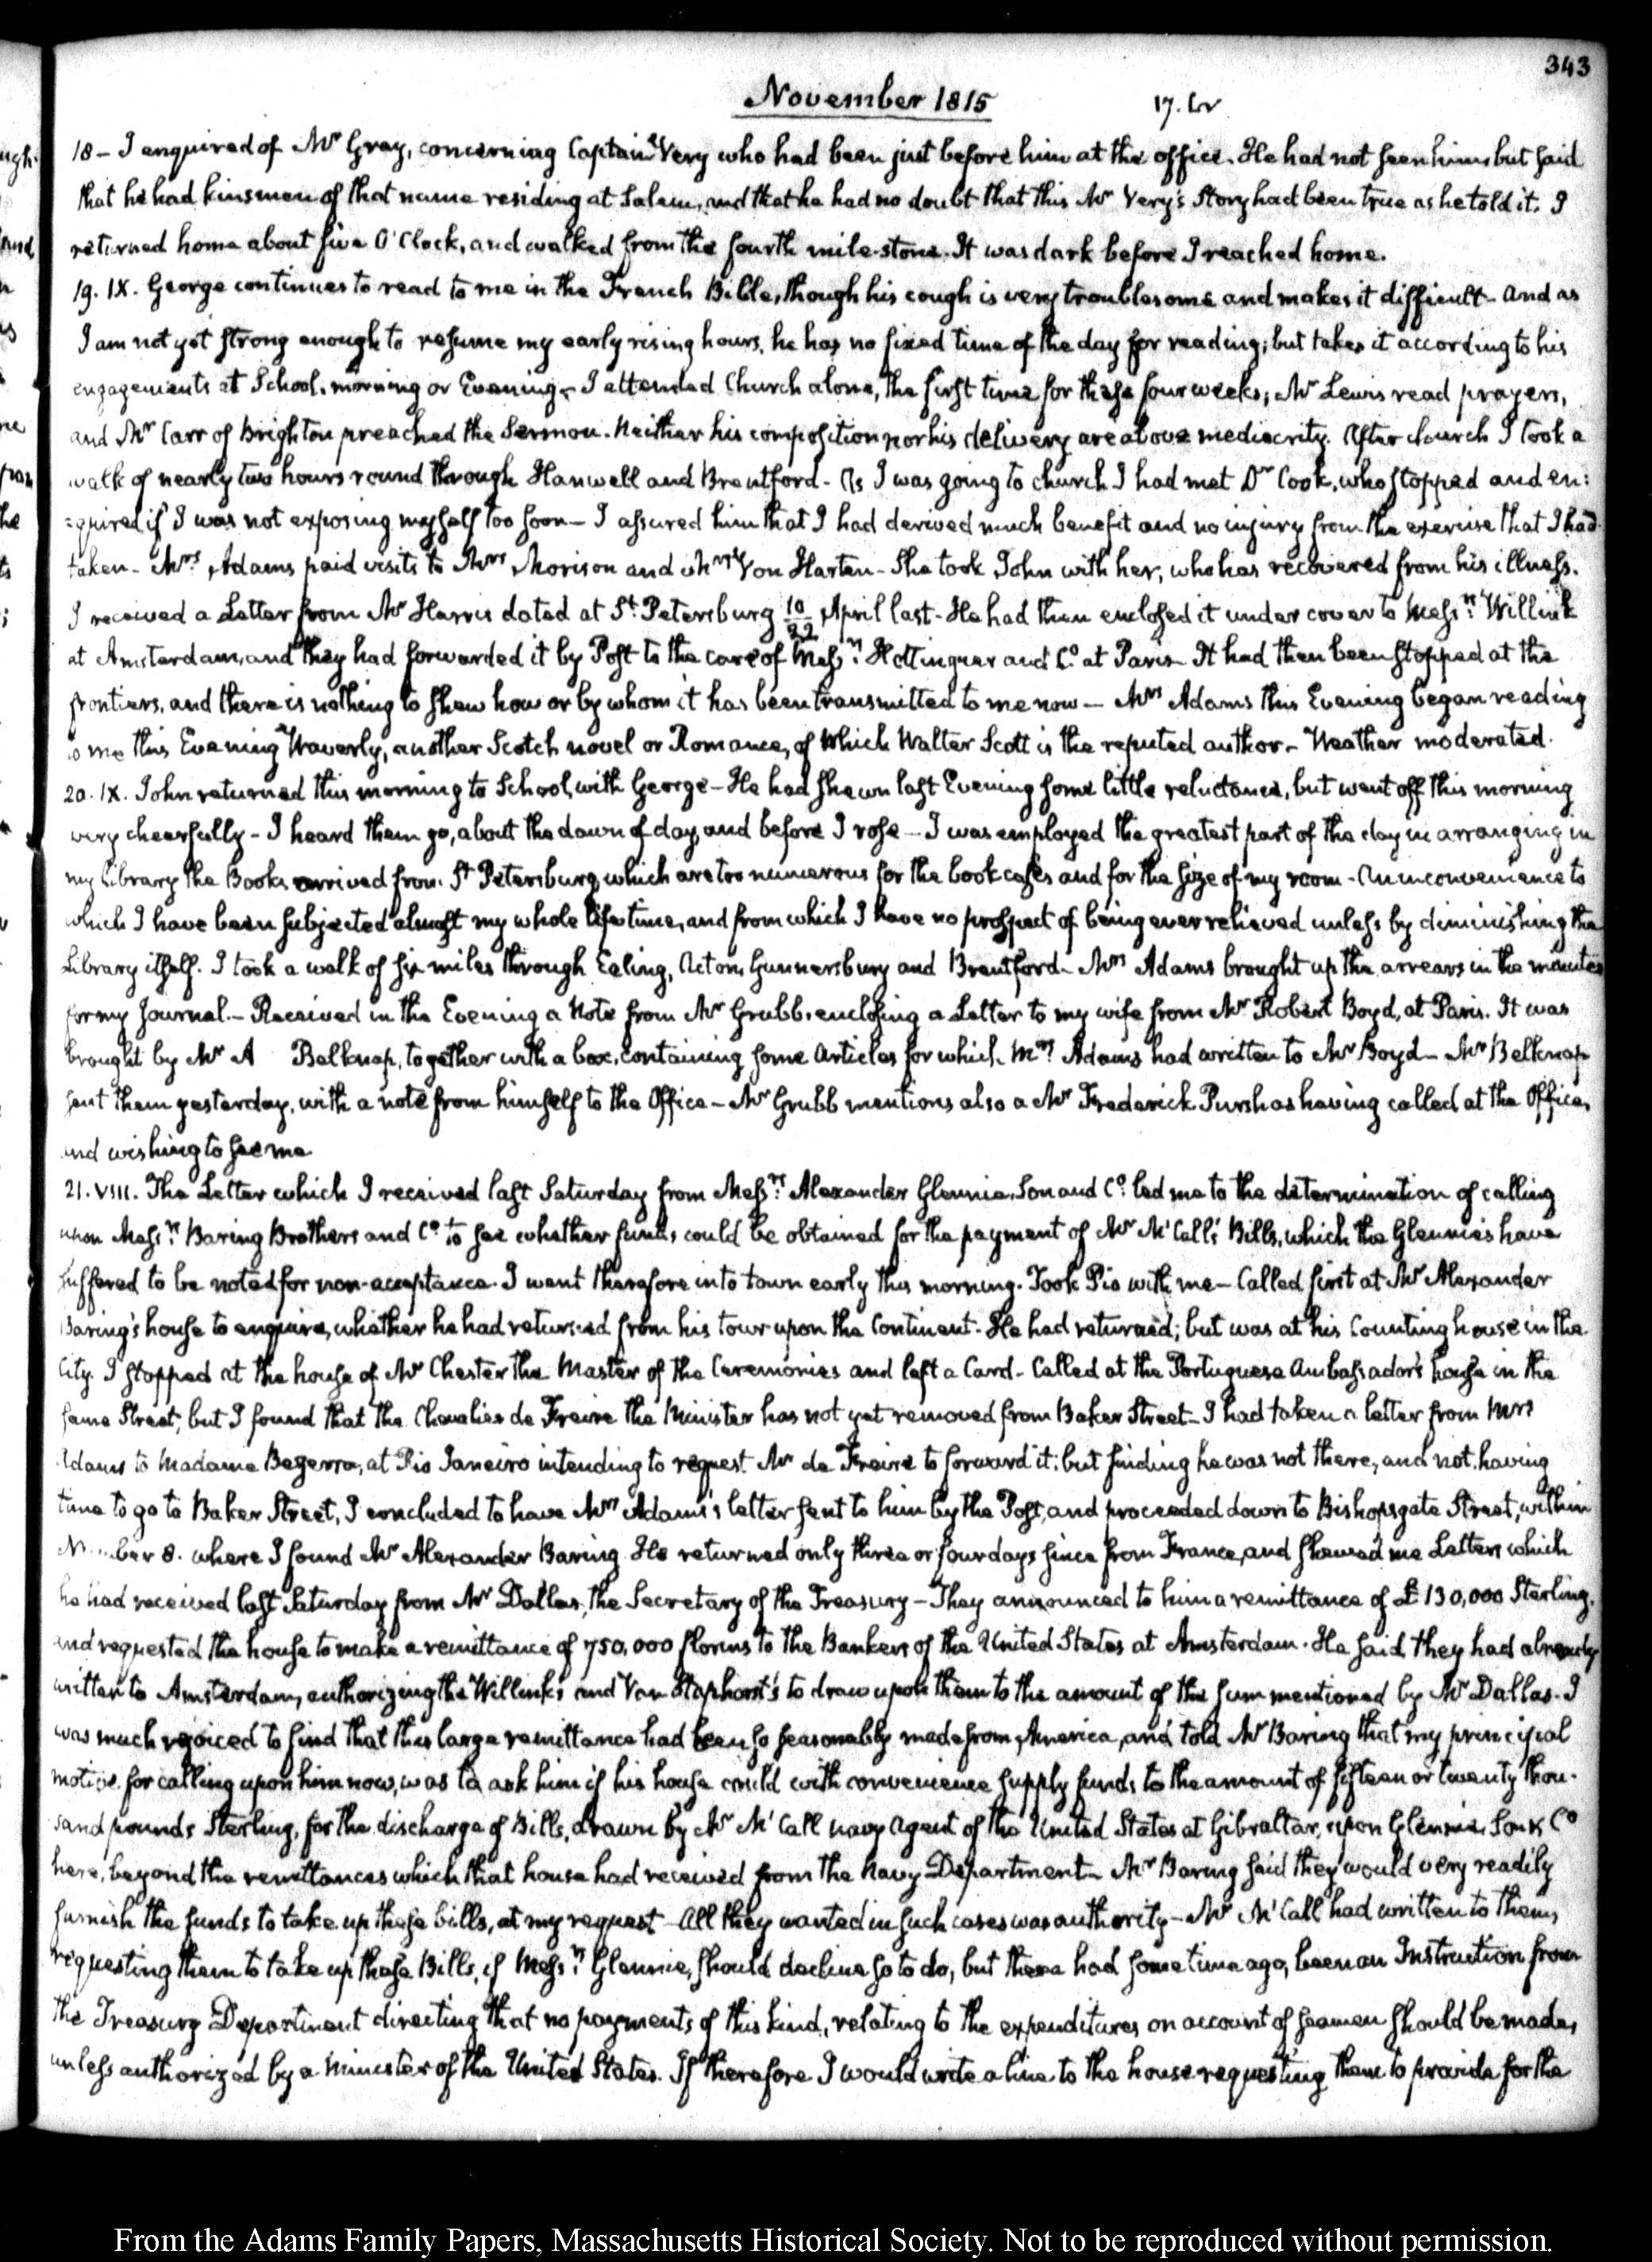 343
November 1815
17. IV
18 – I enquired of Mr. Gray, concerning Captain Very who had been just before him at the office. He had not seen him but said
that he had kinsmen of that name residing at Salem, and that he had no doubt that this Mr Very's Story had been true as he told it. I
returned home about five O'Clock, and walked from the fourth mile-stone. It was dark before I reached home.
19. IX. George continues to read to me in the French Bible, though his cough is very troublesome and makes it difficult – And as
I am not yet strong enough to resume my early rising hours, he has no fixed time of the day for reading; but takes it according to his
engagements at School, morning or Evening – I attended Church alone, the first time for these four weeks; Mr Lewis read prayers,
and Mr Carr of Brighton preached the Sermon. Neither his composition nor his delivery are above mediocrity. After church I took a
walk of nearly two hours round through Hanwell and Brentford – As I was going to church I had met Dr Cook, who stopped and en:
:quired if I was not exposing myself too soon – I assured him that I had derived much benefit and no injury from the exercise that I had
taken – Mrs. Adams paid visits to Mrs Morison and Mrs Von Harten – She took John with her, who has recovered from his illness.
I received a Letter from Mr Harris dated at St. Petersburg 10/22 April last – He had then enclosed it under cover to Messrs. Willink
at Amsterdam, and they had forwarded it by Post to the care of Messrs. Hottinguer and Co. at Paris – It had then been stopped at the
frontiers, and there is nothing to shew how or by whom it has been transmitted to me now – Mrs Adams this Evening began reading
to me this Evening Waverly, another Scotch novel or Romance, of which Walter Scott is the reputed author – Weather moderated.
20. IX. John returned this morning to School, with George – He had shewn last Evening some little reluctance, but went off this morning
very cheerfully – I heard them go, about the dawn of day, and before I rose – I was employed the greatest part of the day in arranging in
my Library the Books arrived from St Petersburg, which are too numerous for the book cases and for the size of my room – An inconvenience to
which I have been subjected almost my whole life time, and from which I have no prospect of being ever relieved unless by diminishing the
Library itself. I took a walk of six miles through Ealing, Acton, Gunnersbury and Brentford – Mrs Adams brought up the arrears in the minutes
for my Journal. – Received in the Evening a Note from Mr Grubb, enclosing a Letter to my wife from Mr Robert Boyd, at Paris. It was
brought by Mr A Belknap, together with a box, containing some Articles for which Mrs Adams had written to Mr Boyd – Mr Belknap
sent them yesterday, with a note from himself to the Office – Mr Grubb mentions also a Mr Frederick Pursh as having called at the Office,
and wishing to see me.
21. VIII. The Letter which I received last Saturday from Messrs. Alexander Glennie, Son and Co. led me to the determination of calling
upon Messrs. Baring Brothers and Co. to see whether funds could be obtained for the payment of Mr McCall's Bills, which the Glennies have
suffered to be noted for non-acceptance. I went therefore into town early this morning. Took Pio with me – Called first at Mr Alexander
Baring's house to enquire, whether he had returned from his tour upon the Continent. He had returned; but was at his Counting house in the
City. I stopped at the house of Mr Chester the Master of the Ceremonies and left a Card – Called at the Portuguese Ambassador's house in the
same Street; but I found that the Chevalier de Freire the Minister has not yet removed from Baker Street – I had taken a letter from Mrs
Adams to Madame Bezerra, at Rio Janeiro intending to request Mr de Freire to forward it; but finding he was not there, and not having
time to go to Baker Street, I concluded to have Mrs Adams's letter sent to him by the Post, and proceeded down to Bishopsgate Street, within
Number 8. where I found Mr Alexander Baring. He returned only three or four days since from France, and shewed me Letters which
he had received last Saturday from Mr Dallas, the Secretary of the Treasury – They announced to him a remittance of £130,000 Sterling,
and requested the house to make a remittance of 750,000 florins to the Bankers of the United States at Amsterdam. He said they had already
written to Amsterdam, authorizing the Willinks and Van Staphorst's to draw upon them to the amount of the sum mentioned by Mr Dallas. I
was much rejoiced to find that this large remittance had been so seasonably made from America, and told Mr Baring that my principal
motive for calling upon him now, was to ask him if his house could with convenience supply funds to the amount of fifteen or twenty thou-
sand pounds Sterling, for the discharge of Bills, drawn by Mr McCall navy Agent of the United States at Gibraltar, upon Glennie, Son & Co
here, beyond the remittances which that house had received from the Navy Department – Mr Baring said they would very readily
furnish the funds to take up these bills, at my request – All they wanted in such cases was authority – Mr McCall had written to them,
requesting them to take up these Bills, if Messrs. Glennie, should decline so to do, but there had some time ago, been an Instruction from
the Treasury Department directing that no payments of this kind, relating to the expenditures on account of seamen should be made,
unless authorized by a Minister of the United States. If therefore I would write a line to the house requesting them to provide for the
From the Adams Family Papers, Massachusetts Historical Society. Not to be reproduced without permission.